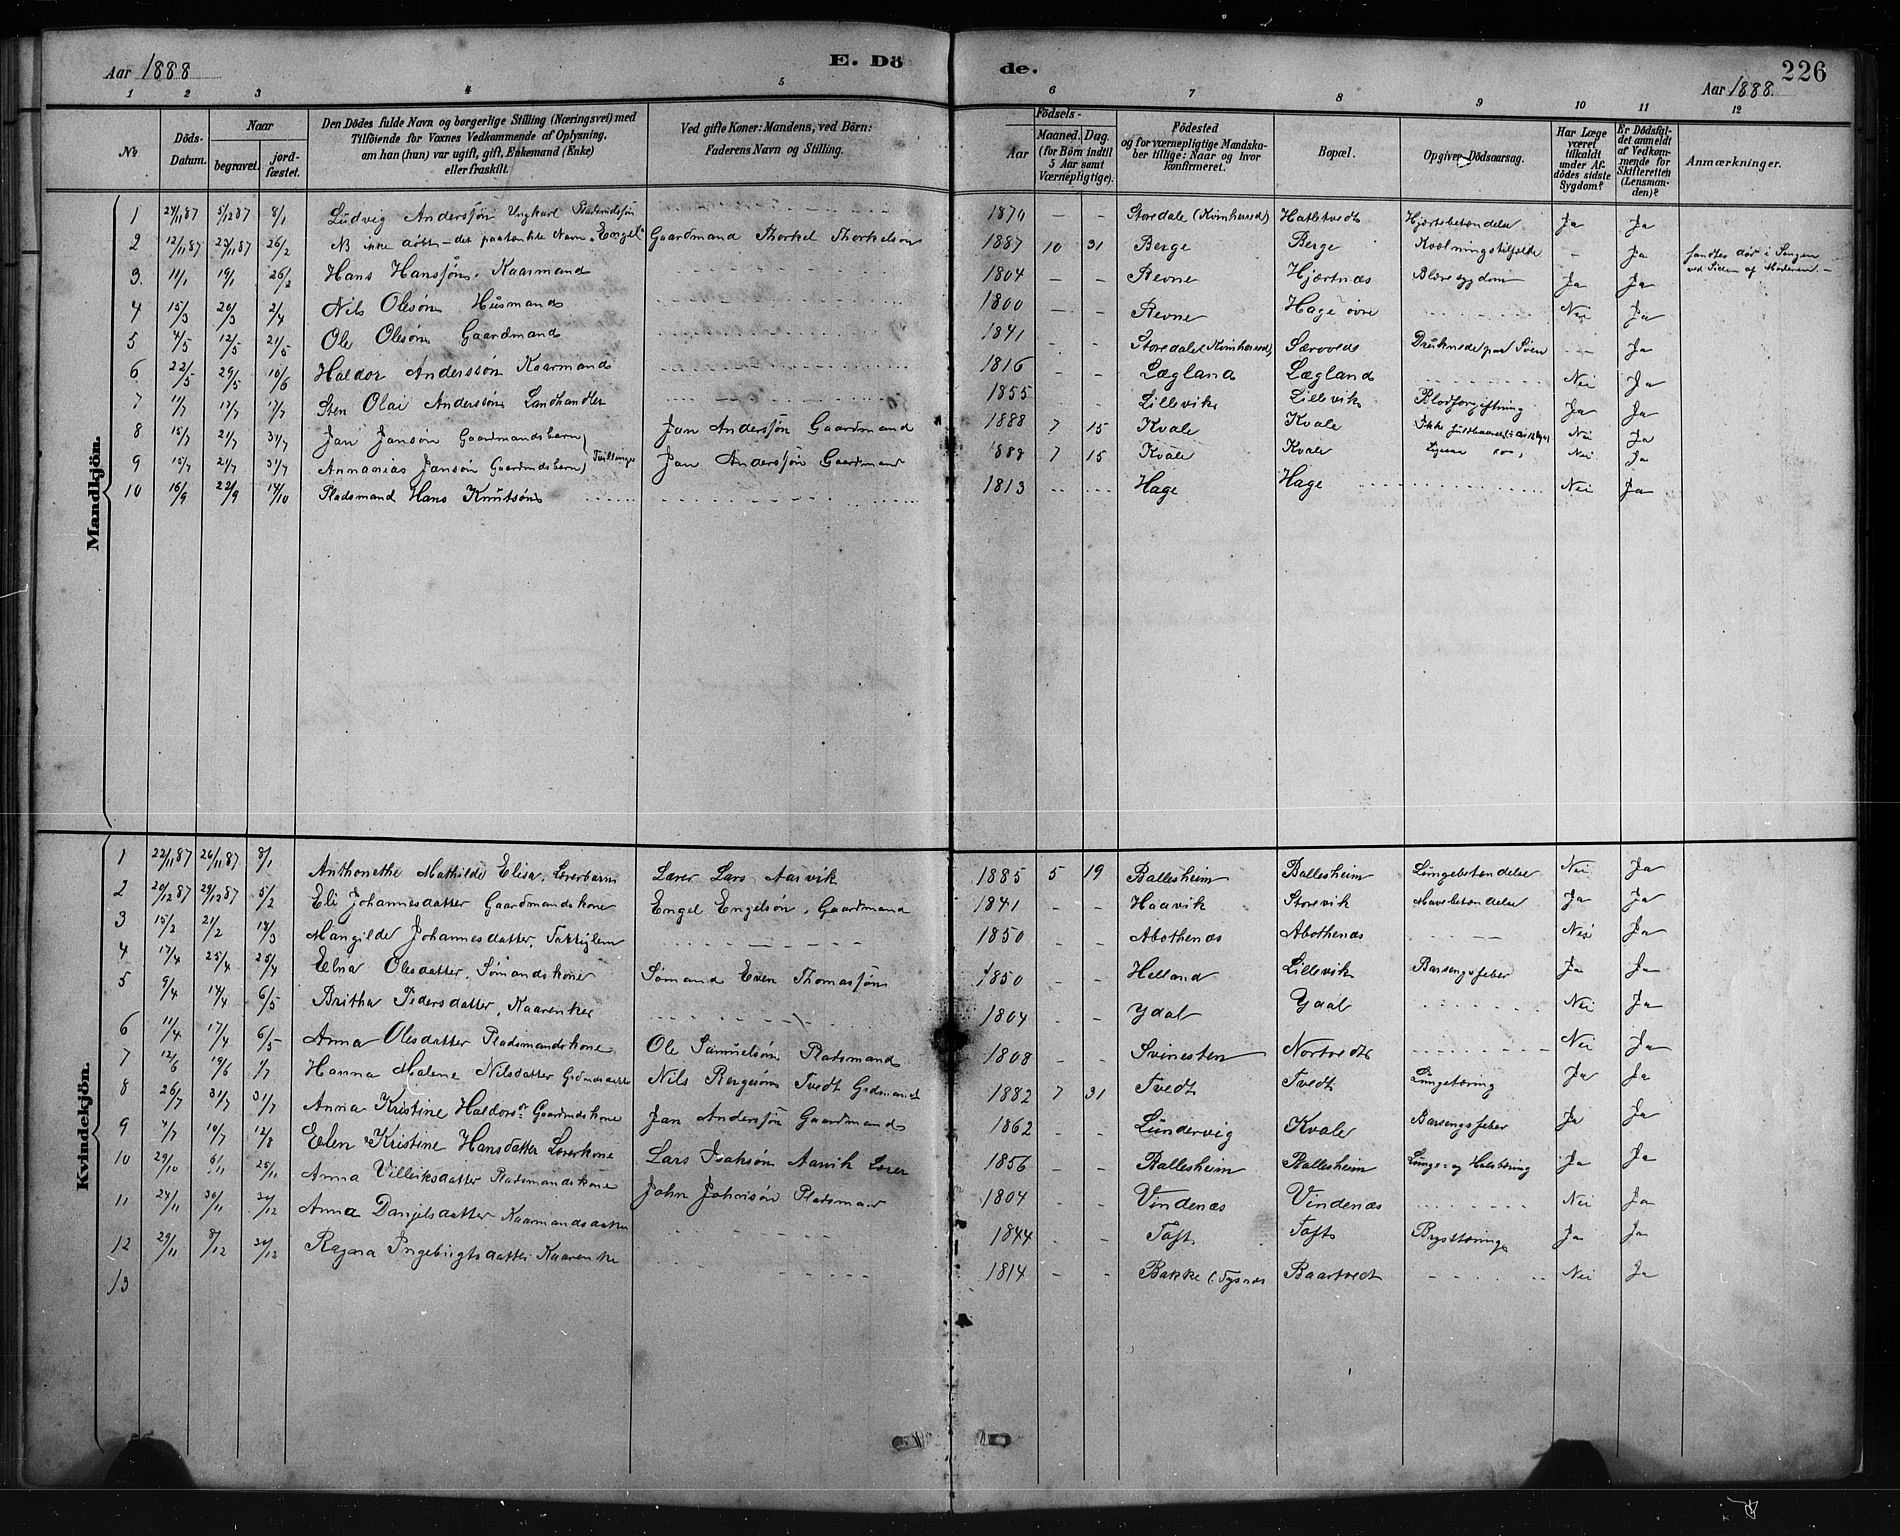 Aar 1888
E. Dö
de.
Aar 1888.
226
1 2 3 4 5 6 7 8 9 10 11 12
№
Döds-Datum.
Naar
begravet.
jord-fæstet.
Den Dödes fulde Navn og borgerlige Stilling (Næringsvei) med
Tilföiende for Voxnes Vedkommende af Oplysning,
om han (hun) var ugift, gift, Enkemand (Enke)
eller fraskilt.
Ved gifte Koner: Mandens, ved Börn:
Faderens Navn og Stilling.
Födsels-
Aar
Maaned. Dag.
(for Börn indtil
5 Aar samt
Værnepligtige).
Födested
og for værnepligtige Mandska-
ber tillige: Naar og hvor
konfirmeret.
Bopæl.
Opgiven Dödsaarsag.
Har Læge
været
tilkaldt
under Af-
dödes sidste
Sygdom?
Er Dödsfal-
det anmeldt
af Vedkom-
mende for
Skifteretten
(Lensman-
den)?
Anmærkninger.
Mandkjön.
1 24/11 87 5/12 87 8/1 Ludvig Anderssøn Ungkarl Pladsmdssøn 1870 – – Storedale (Kvinherred) Hatletvedt Hjertebetændelse Ja Ja
2 12/11 87 23/11 87 26/2 NB ikke døbt – det paatænkte Navn "Engel" Gaardmand Thorkel Thorkelsen 1887 10 31 Berge Berge Kvælningstilfælde – Ja fandtes død i Sengen
ved Siden af Moderen. –
3. 11/1 19/1 26/2 Hans Hanssøn, Kaarmand 1804 – – Revne Hjærtnæs Blæresygdom Ja Ja
4 15/3 20/3 2/4 Nils Olesøn Husmand 1800 – – Revne Hage øvre Nei Ja
5 4/5 12/5 21/5 Ole Olesøn Gaardmand 1841 – – Storedale (Kvinherred) Særvold Druknede paa Søen – – Ja
6 22/5 29/5 10/6 Haldor Anderssøn Kaarmand 1816 – – Lægland Lægland Nei Ja
7 11/7 17/7 17/7 Sten Olai Anderssøn Landhandler 1855 – – Lillevik Lillevik Blodforgiftning Ja Ja
8 15/7 21/7 31/7 Jan Jansøn Gaardmandsbarn Jan Anderssøn Gaardmand 1888 7 15 Kvale Kvale Ikke fuldbaaret Nei Ja
9 15/7 21/7 31/7 Annanias Jansøn Gaardmdsbarn Tvillinger Jan Anderssøn Gaardmand 1888 7 15 Kvale Kvale Nei Ja
10 16/9 22/9 14/10 Pladsmand Hans Knutsøn 1813 Hage Hage Nei Ja
Kvindekjön.
1 22/11 87 26/11 87 8/1 Anthonethe Mathilde Elisa, Lærerbarn Lærer Lars Aarvik 1885 5 19 Ballesheim Ballesheim Lungebetændelse Nei Ja
2 20/12 87 29/12 87 5/2 Eli Johannesdatter Gaardmandskone Engel Engelsøn, Gaardmand 1841 – – Haavik Storevik Mavebetændelse Ja Ja
3 15/2 21/2 18/3 Mangilde Johannesdatter, Fattiglem 1850 – – Abothenæs Abothenæs Nei Ja
4 17/4 25/4 25/4 Elna Olesdatter, Sømandskone Sømand Even Thomassøn 1850 – – Helland Lillevik Barsengsfeber Ja Ja
5 9/4 14/4 6/5 Britha Pedersdatter, Kaarenke 1804 – – Ydal Ydal Nei Ja
6 11/4 17/4 6/5 Anna Olesdatter Pladsmandskone Ole Samuelsøn Pladsmand 1808 – – Svinesten Nortvedt Nei Ja
7 12/6 19/6 1/7 Hanna Malene Nilsdatter Nils Bergesøn Tvedt Grdmand 1882 7 31 Tvedt Tvedt Lungetæring Ja Ja
8 26/7 31/7 31/7 Anna Kristine Haldorsdr Gaardmdskone Jan Anderssøn Gaardmand 1862 – – Lundervig Kvale Barsengsfeber Ja Ja
9 4/7 10/7 12/8 Elen Kristine Hansdatter Lærerkone Lars Isaksøn Aarvik Lærer 1856 – – Ballesheim Ballesheim Lunge- og Halstæring Ja Ja
10 29/10 6/11 25/11 Anna Villiksdatter Pladsmandskone John Johnsøn Pladsmand 1804 – – Vindenæs Vindenæs Nei Ja
11 24/11 30/11 30/12 Anna Danielsdatter Kaarmandsdatter 1844 – – Toft Toft Brysttæring Ja Ja
12 29/11 8/12 30/12 Ragna Ingebrigtsdatter Kaarenke 1814 – – Bakke (Tysnæs Baartvedt Nei Ja
13